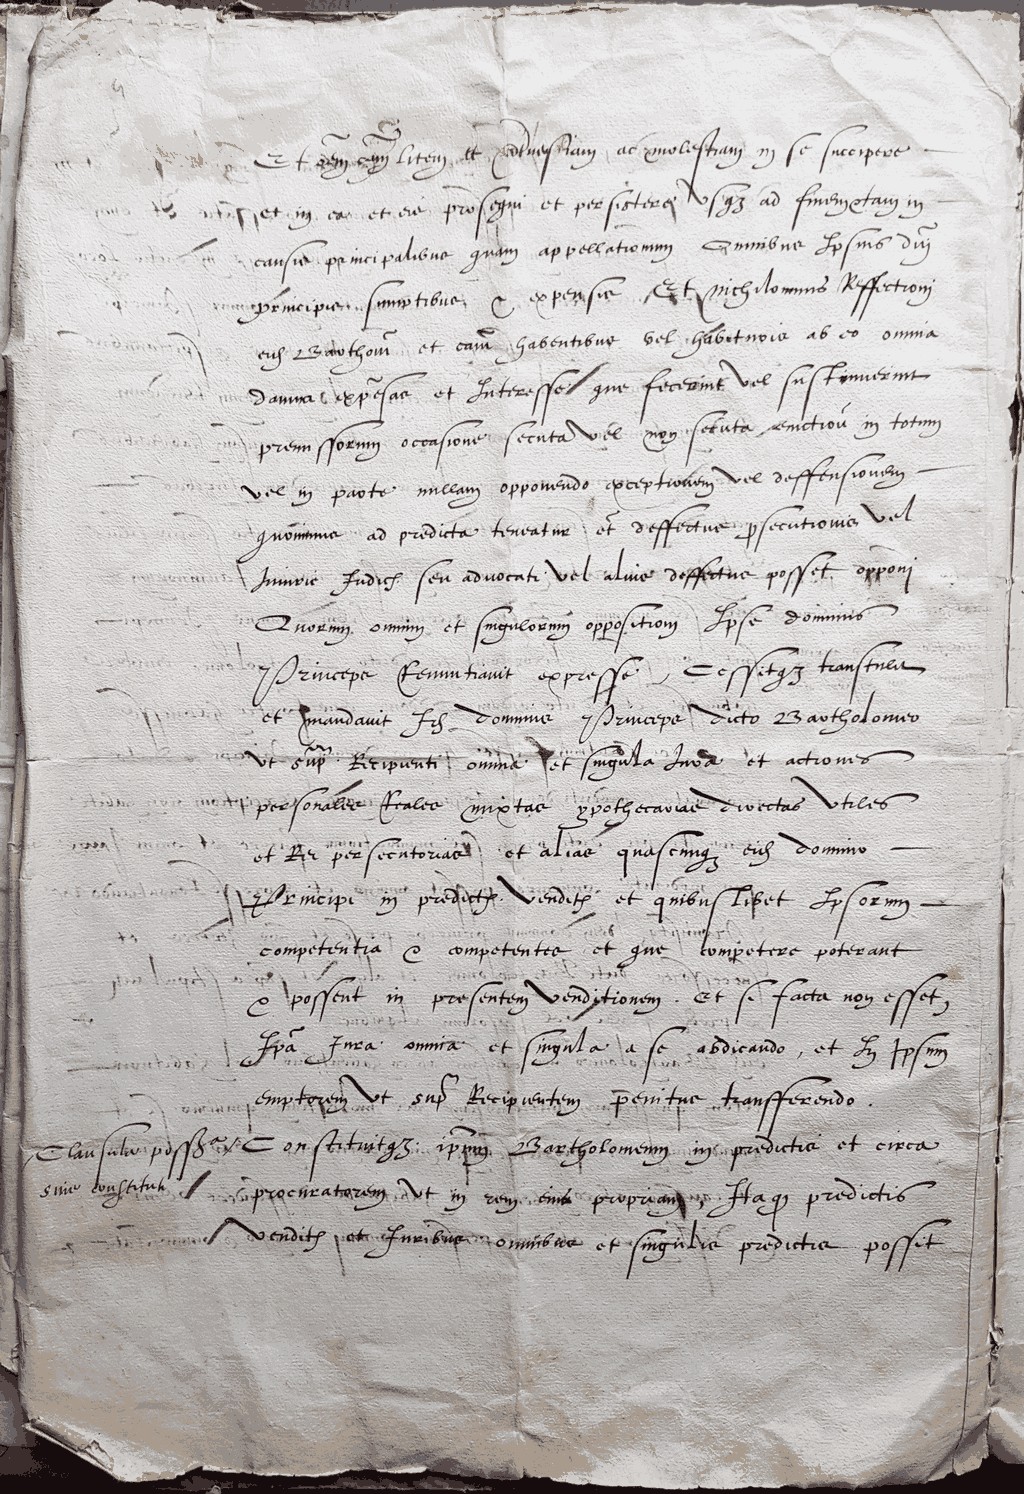 Et oem cem litem et controversiam ac molestiam in se succipere
et in ea et eis prosegui et persistere usqz ad finem tam in
causis principalibus quam appellationum Omnibus Ipsius dni
principis sumptibus & expensis Et nichilominus Reffectioni
eid Barthomo et eam habentibus vel habituris ab eo omnia
damna expesas et Interesse que fecerint vel sustinuerint
premissorum occasione secuta vel non secuta evictioe in totum
vel in parte nullam opponendo exceptionem vel deffensionem
quominus ad predicta teneatur et deffectus psecutionis vel
Iniurie Judicis seu advocati vel alius deffectus posset opponi
Quorum omnium et singulorum oppositioni Ipse dominus
Princeps Renuntiavit expresse, Cessitqz transtulit
et mandavit Ids dominus Princeps dicto Bartholomeo
ut supra Recipienti omnia et singula Iura et actiones
personales Reales mixtas ypothecarias directas utiles
et Rei persecutorias et alias quascumqz eid domino
Principi in predictis venditis et quibuslibet Ipsorum
competentia & competentes et que competere poterant
& possent in presentem venditionem. Et si facta non esset,
Ipa Iura omnia et singula a se abdicando, et In Ipsum
emptorem ut supra Recipientem penitus transfferendo.
Clausula possris Constituitqz ipsum Bartholomeum in predictis et circa
sive constituti procuratorem ut in rem suam propriam, Itaq predictis
venditis et Iuribus omnibus et singulis predictis possit